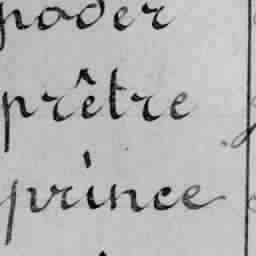 poder
prêtre
prince